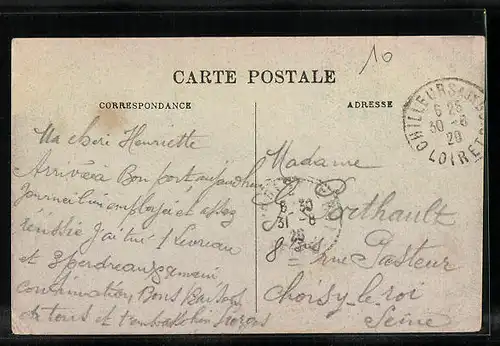 10
CARTE POSTALE
CORRESPONDANCE
ADRESSE
CHILLEURS AUX B
6 25
30 - 8
20
LOIRET
Ma chéri Henriette
Arrivée à Bon port aujourd'hui
Journée bien employée et assez
réussie j'ai tué 1 Levreau
et 3 perdreaux
continuation Bons Baisers
de tous et
Madame
Porthault
8 bis rue Pasteur
Choisy-le-roi
Seine
8 30
31 - 8
20